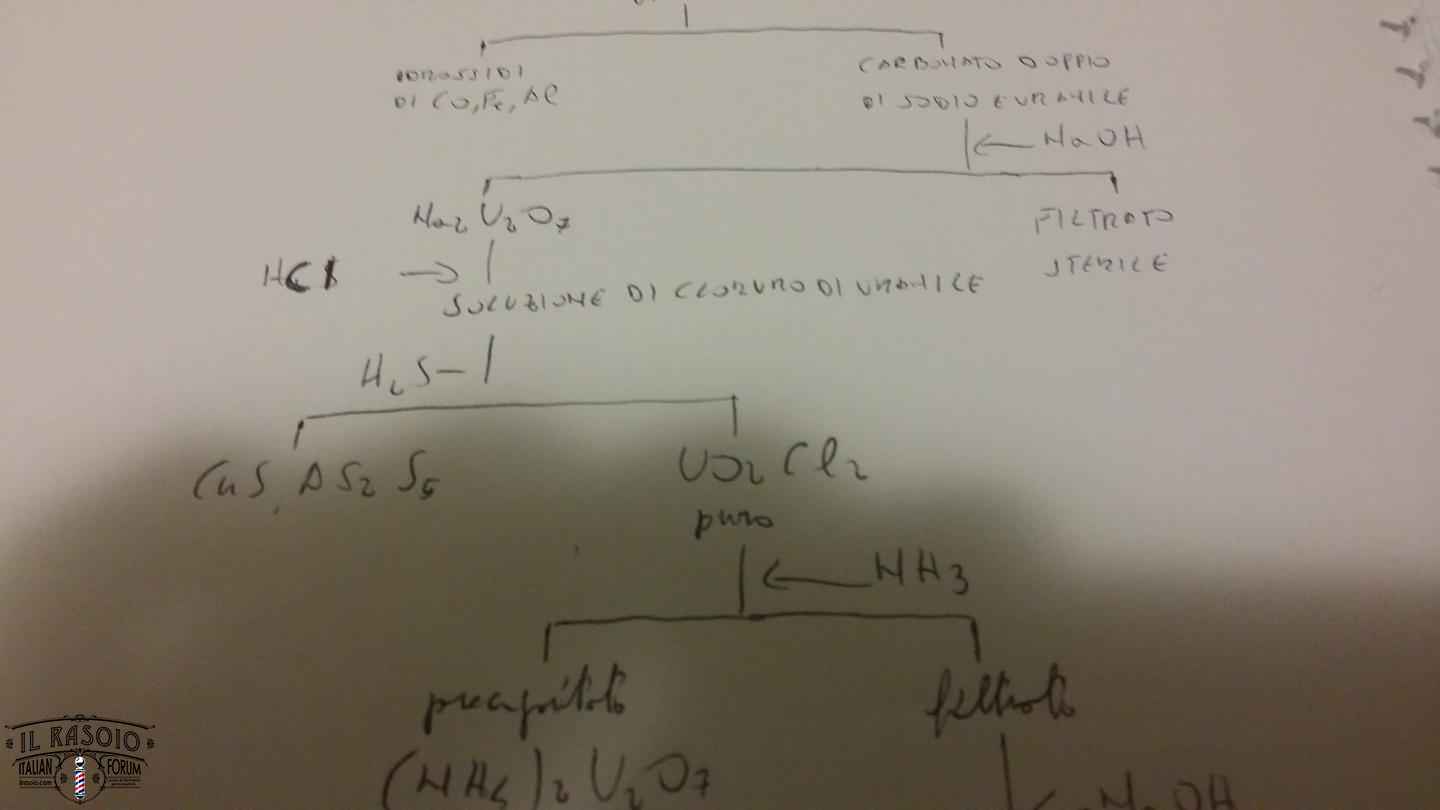 IDROSSIDI
DI CO, Fe, Al
CARBONATO DOPPIO
DI SODIO E URANILE
← NaOH
Na2 U2 O7
FILTRATO
STERILE
HCl →
SOLUZIONE DI CLORURO DI URANILE
H2S
CuS, AS2 S5
UO2 Cl2
puro
← NH3
precipitato
filtrato
(NH4)2 U2 O7
← NaOH
IL RASOIO
ITALIAN FORUM
ilrasoio.com